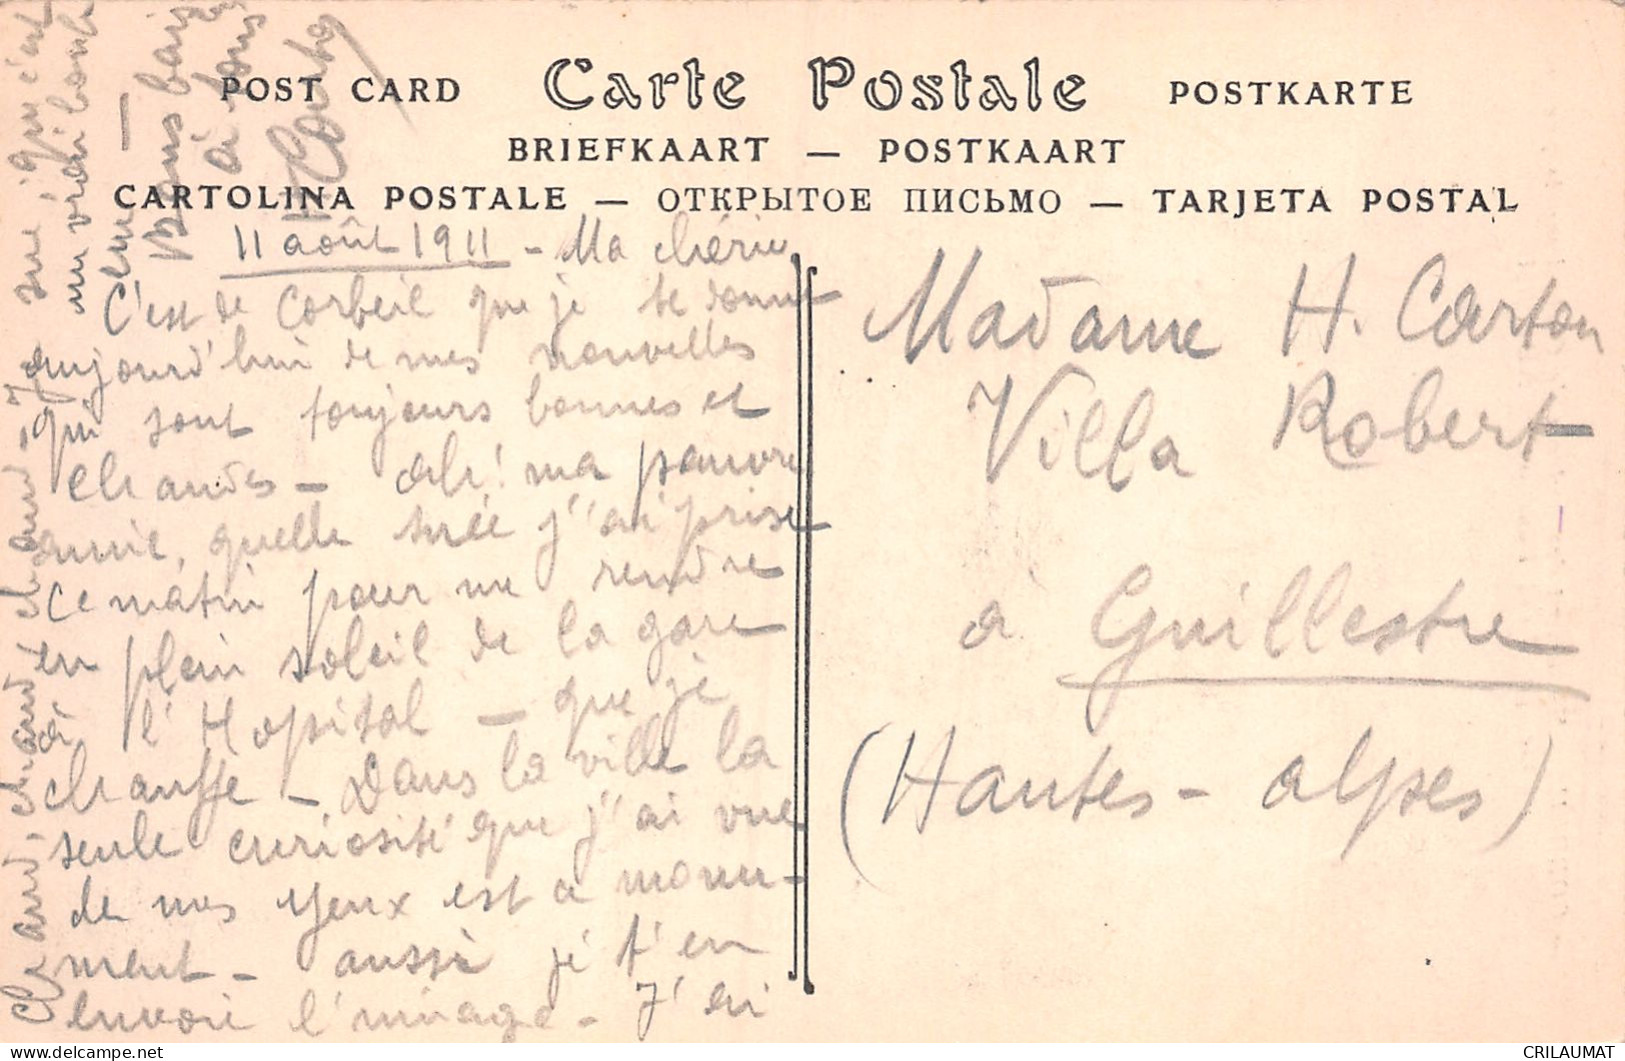 POST CARD Carte Postale POSTKARTE
BRIEFKAART — POSTKAART
CARTOLINA POSTALE — ОТКРЫТОЕ ПИСЬМО — TARJETA POSTAL
11 août 1911 - Ma chérie
C'est de Corbeil que je te donne
aujourd'hui de mes nouvelles
qui sont toujours bonnes et
chaudes - ah! ma pauvre
amie, quelle suée j'ai prise
ce matin pour me rendre
en plein soleil de la gare
à l'Hopital - que je
chauffe - Dans la ville la
seule curiosité que j'ai vue
de mes yeux est ce monu-
ment - aussi je t'en
envoie l'image - J'ai
chaud, chaud, chaud, chaud
que c'est
un vrai bonh
eur -
Bons baisers
à tous
H Carton
Madame H. Carton
Villa Robert
à Guillestre
(Hautes-alpes)
CRILAUMAT